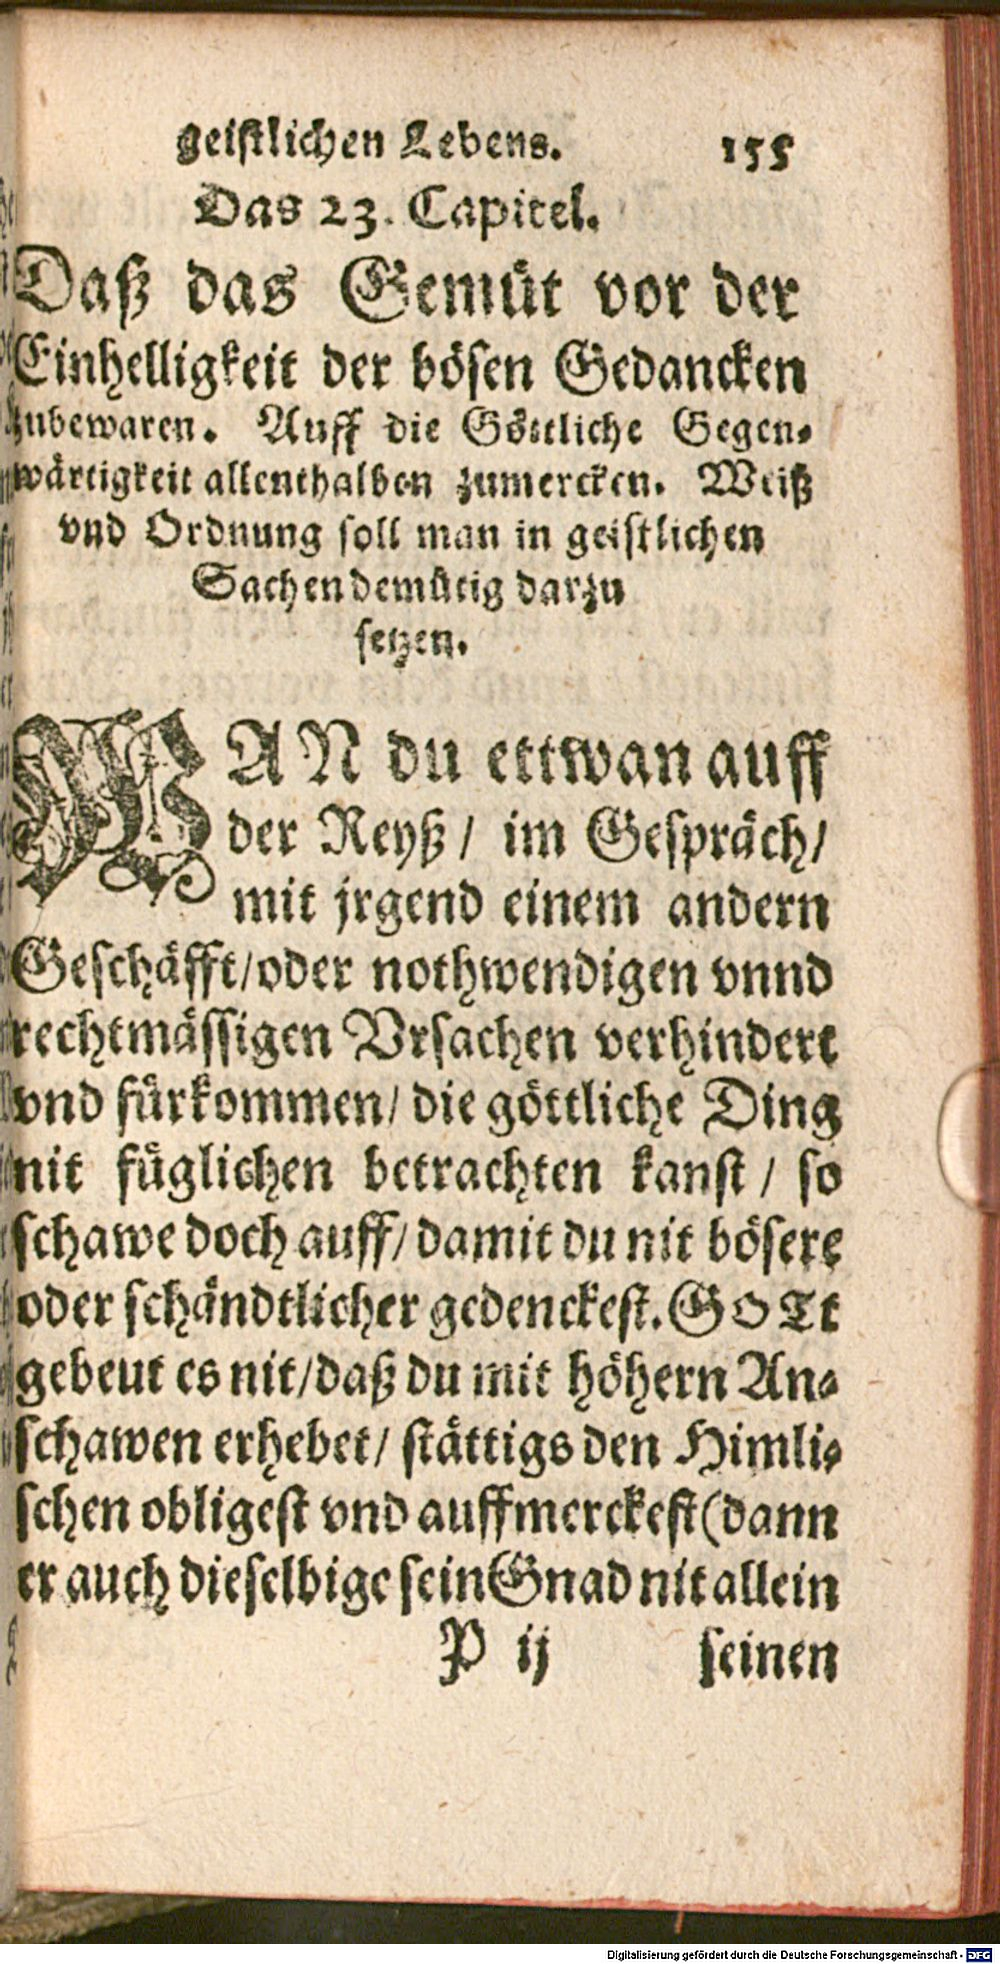 geistlichen Lebens. 155
Das 23. Capitel.
Daß das Gemüt vor der
Einhelligkeit der bösen Gedancken
zubewaren. Auff die Göttliche Gegen-
wärtigkeit allenthalben zumercken. Weiß
vnd Ordnung soll man in geistlichen
Sachen demütig darzu
setzen.
WAN du ettwan auff
der Reyß / im Gespräch /
mit jrgend einem andern
Geschäfft / oder nothwendigen vnnd
rechtmässigen Vrsachen verhindert
vnd fürkommen / die göttliche Ding
nit füglichen betrachten kanst / so
schawe doch auff / damit du nit bösere
oder schändtlicher gedenckest. GOTt
gebeut es nit / daß du mit höhern An-
schawen erhebet / stättigs den Himli-
schen obligest vnd auffmerckest (dann
er auch dieselbige sein Gnad nit allein
P ij seinen
Digitalisierung gefördert durch die Deutsche Forschungsgemeinschaft - DFG